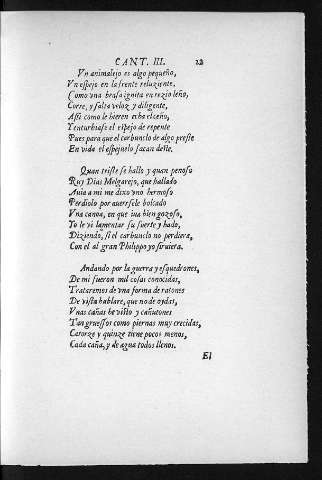 CANT. III. 22
Vn animalejo es algo pequeño,
Vn espejo en la frente reluziente,
Como vna brasa ignita en rezio leño,
Corre, y salta veloz y diligente,
Assi como le hieren echa el ceño,
Yenturbiase el espejo de repente
Pues para que el carbunclo de algo preste
En vida el espejuelo sacan deste.
Quan triste se hallo y quan penoso
Ruy Dias Melgarejo, que hallado
Auia a mi me dixo vno hermoso
Perdiolo por auersele bolcado
Vna canoa, en que iua bien gozoso,
Yo le vi lamentar su suerte y hado,
Diziendo, si el carbunclo no perdiera,
Con el al gran Philippo yo siruiera.
Andando por la guerra y esquadrones,
De mi fueron mil cosas conocidas,
Trataremos de vna forma de ratones
De vista hablare, que no de oydas,
Vnas cañas he visto y cañutones
Tan gruessos como piernas muy crecidas,
Catorze y quinze tiene pocos menos,
Cada caña, y de agua todos llenos.
El